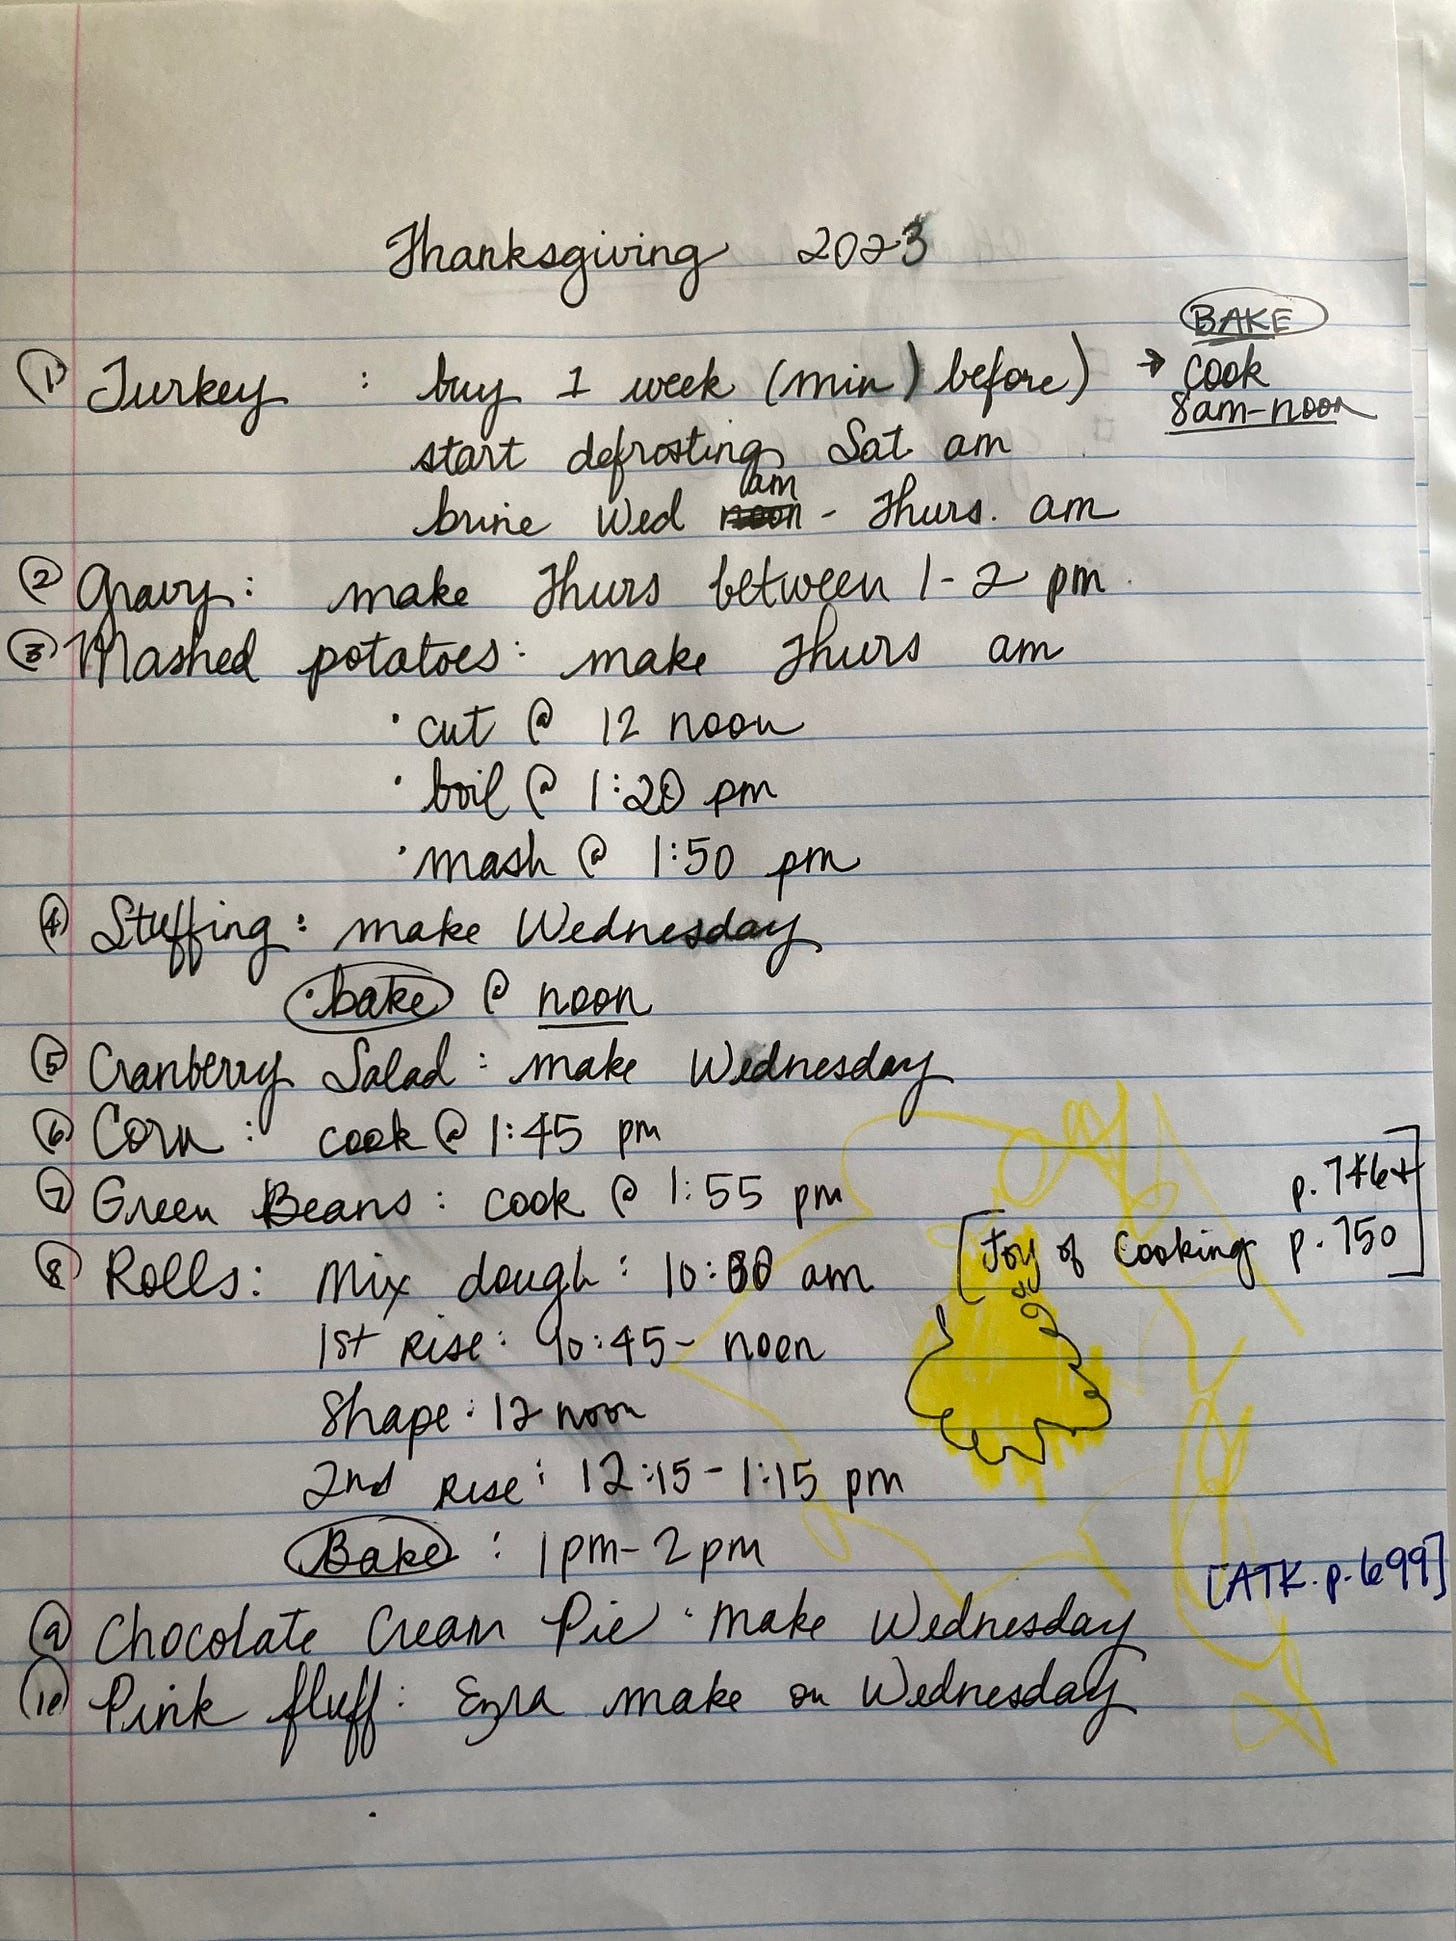 Thanksgiving 2023
BAKE
① Turkey : buy 1 week (min) before) → cook
8am-noon
start defrosting Sat am
am
brine Wed noon - Thurs. am
② Gravy: make Thurs between 1-2 pm
③ Mashed potatoes: make Thurs am
· cut @ 12 noon
· boil @ 1:20 pm
· mash @ 1:50 pm
④ Stuffing: make Wednesday
· bake @ noon
⑤ Cranberry Salad: make Wednesday
⑥ Corn: cook @ 1:45 pm
⑦ Green Beans: cook @ 1:55 pm
[Joy of Cooking p. 750]
⑧ Rolls: Mix dough: am
1st Rise: 10:45- noon
Shape: 12 noon
2nd Rise: 12:15-1:15 pm
Bake: 1pm-2pm
[ATK. p. 699]
⑨ Chocolate Cream Pie: make Wednesday
⑩ Pink fluff: Ezra make on Wednesday